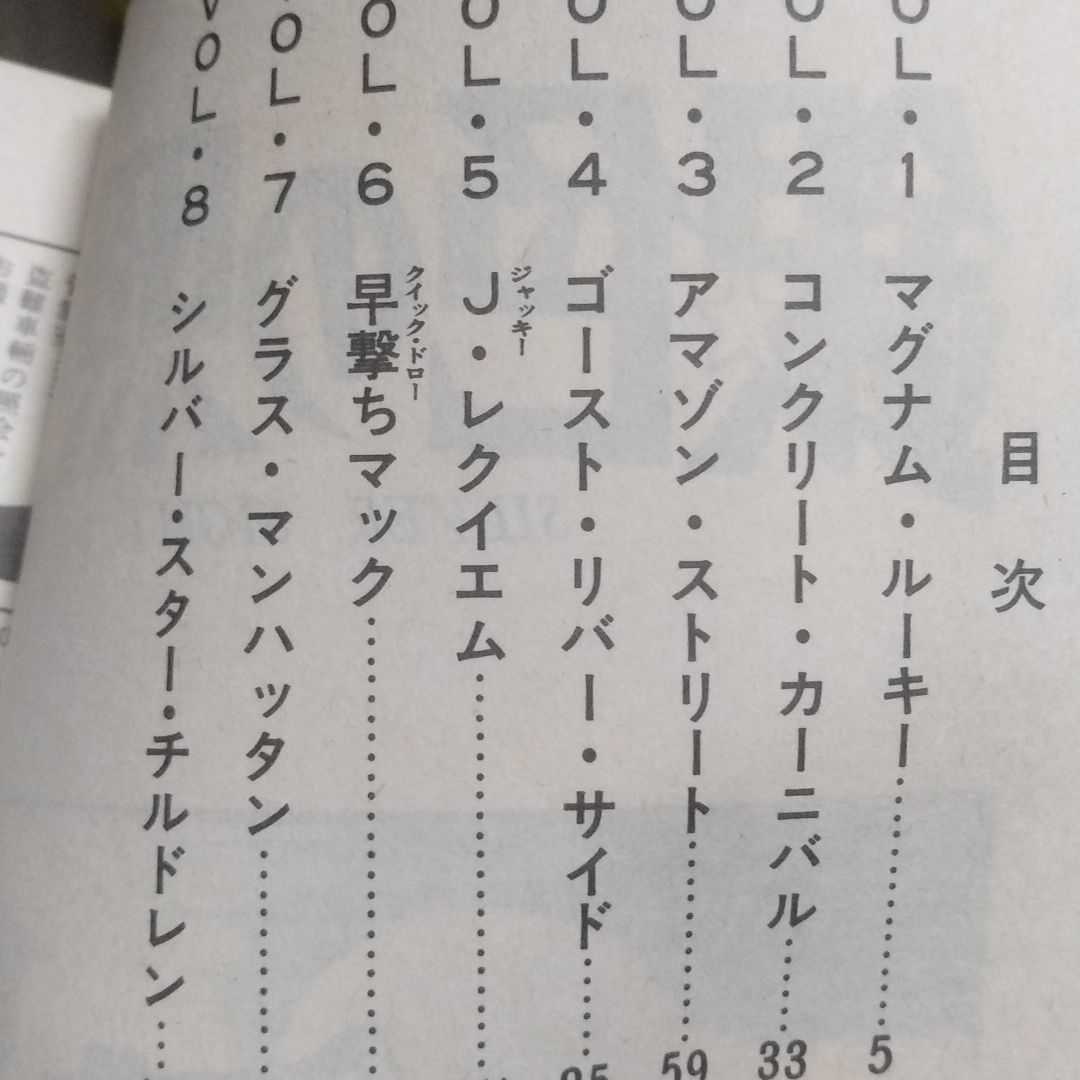 目次
VOL・1 マグナム・ルーキー…………5
VOL・2 コンクリート・カーニバル……33
VOL・3 アマゾン・ストリート…………59
VOL・4 ゴースト・リバー・サイド……
ジャッキー
VOL・5 J・レクイエム…………
クイック・ドロー
VOL・6 早撃ちマック…………
VOL・7 グラス・マンハッタン…………
VOL・8 シルバー・スター・チルドレン…